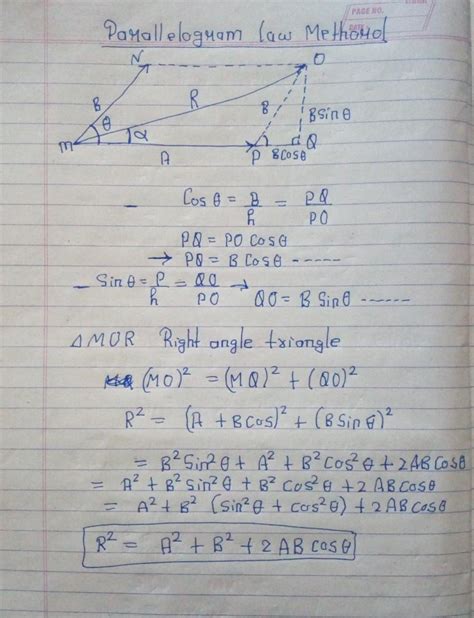 PAGE NO.
DATE
Parallelogram law Methord
N
O
B
R
B
BSinθ
θ
α
M
A
P
BCosθ
Q
– Cosθ = B/h = PQ/PO
PQ = PO Cosθ
→ PQ = B Cosθ ------
– Sinθ = P/h = QO/PO → QO = B Sinθ ------
△MOR Right angle triangle
(MO)² = (MQ)² + (QO)²
R² = (A + BCos)² + (BSinθ)²
= B²Sin²θ + A² + B²Cos²θ + 2ABCosθ
= A² + B²Sin²θ + B²Cos²θ + 2ABCosθ
= A² + B² (Sin²θ + Cos²θ) + 2ABCosθ
R² = A² + B² + 2ABCosθ